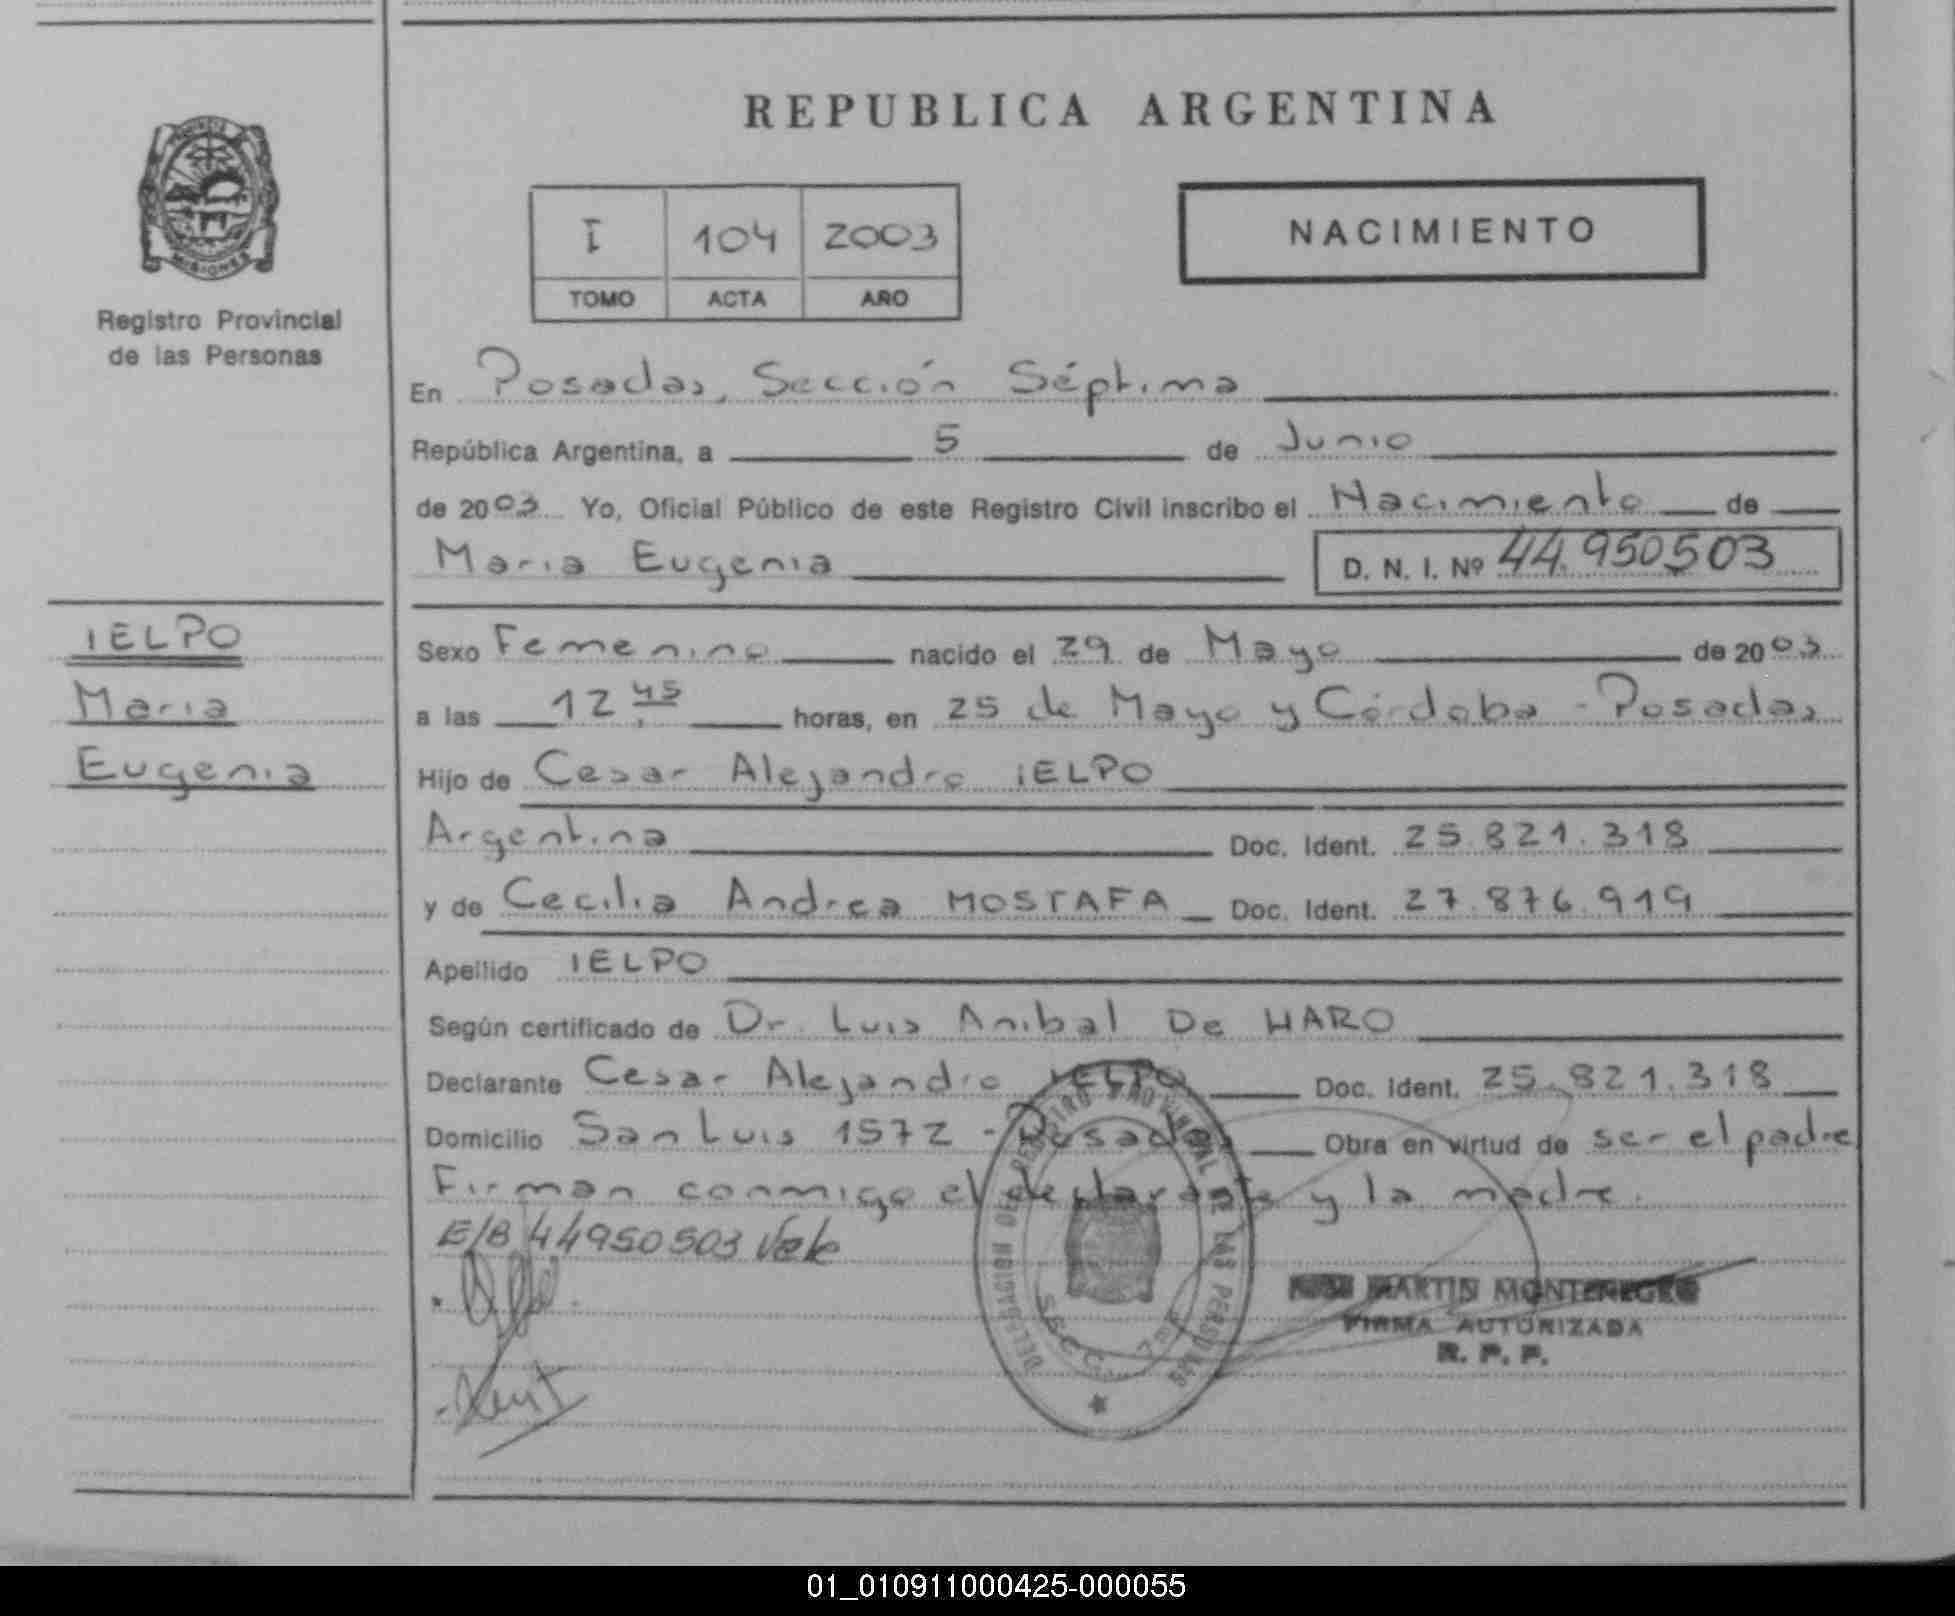 REPUBLICA ARGENTINA
PROVINCIA DE
MISIONES
Registro Provincial
de las Personas
I 104 2003
TOMO ACTA AÑO
NACIMIENTO
En Posadas, Sección Séptima
República Argentina, a 5 de Junio
de 2003 Yo, Oficial Público de este Registro Civil inscribo el Nacimiento de
Maria Eugenia D. N. I. Nº 44.950503
IELPO
Maria
Eugenia
Sexo Femenino nacido el 29 de Mayo de 2003
a las 12 45 horas, en 25 de Mayo y Córdoba - Posadas
Hijo de Cesar Alejandro IELPO
Argentina Doc. Ident. 25.821.318
y de Cecilia Andrea MOSTAFA Doc. Ident. 27.876.919
Apellido IELPO
Según certificado de Dr. Luis Anibal De HARO
Declarante Cesar Alejandro IELPO Doc. Ident. 25.821.318
Domicilio San Luis 1572 - Posadas Obra en virtud de ser el padre
Firman conmigo el declarante y la madre.
E/B 44950503 Vale
DELEGACION DEL REGISTRO PROVINCIAL DE LAS PERSONAS
SECC. 7ma
MARTIN MONTENEGRO
FIRMA AUTORIZADA
R. P. P.
01_010911000425-000055